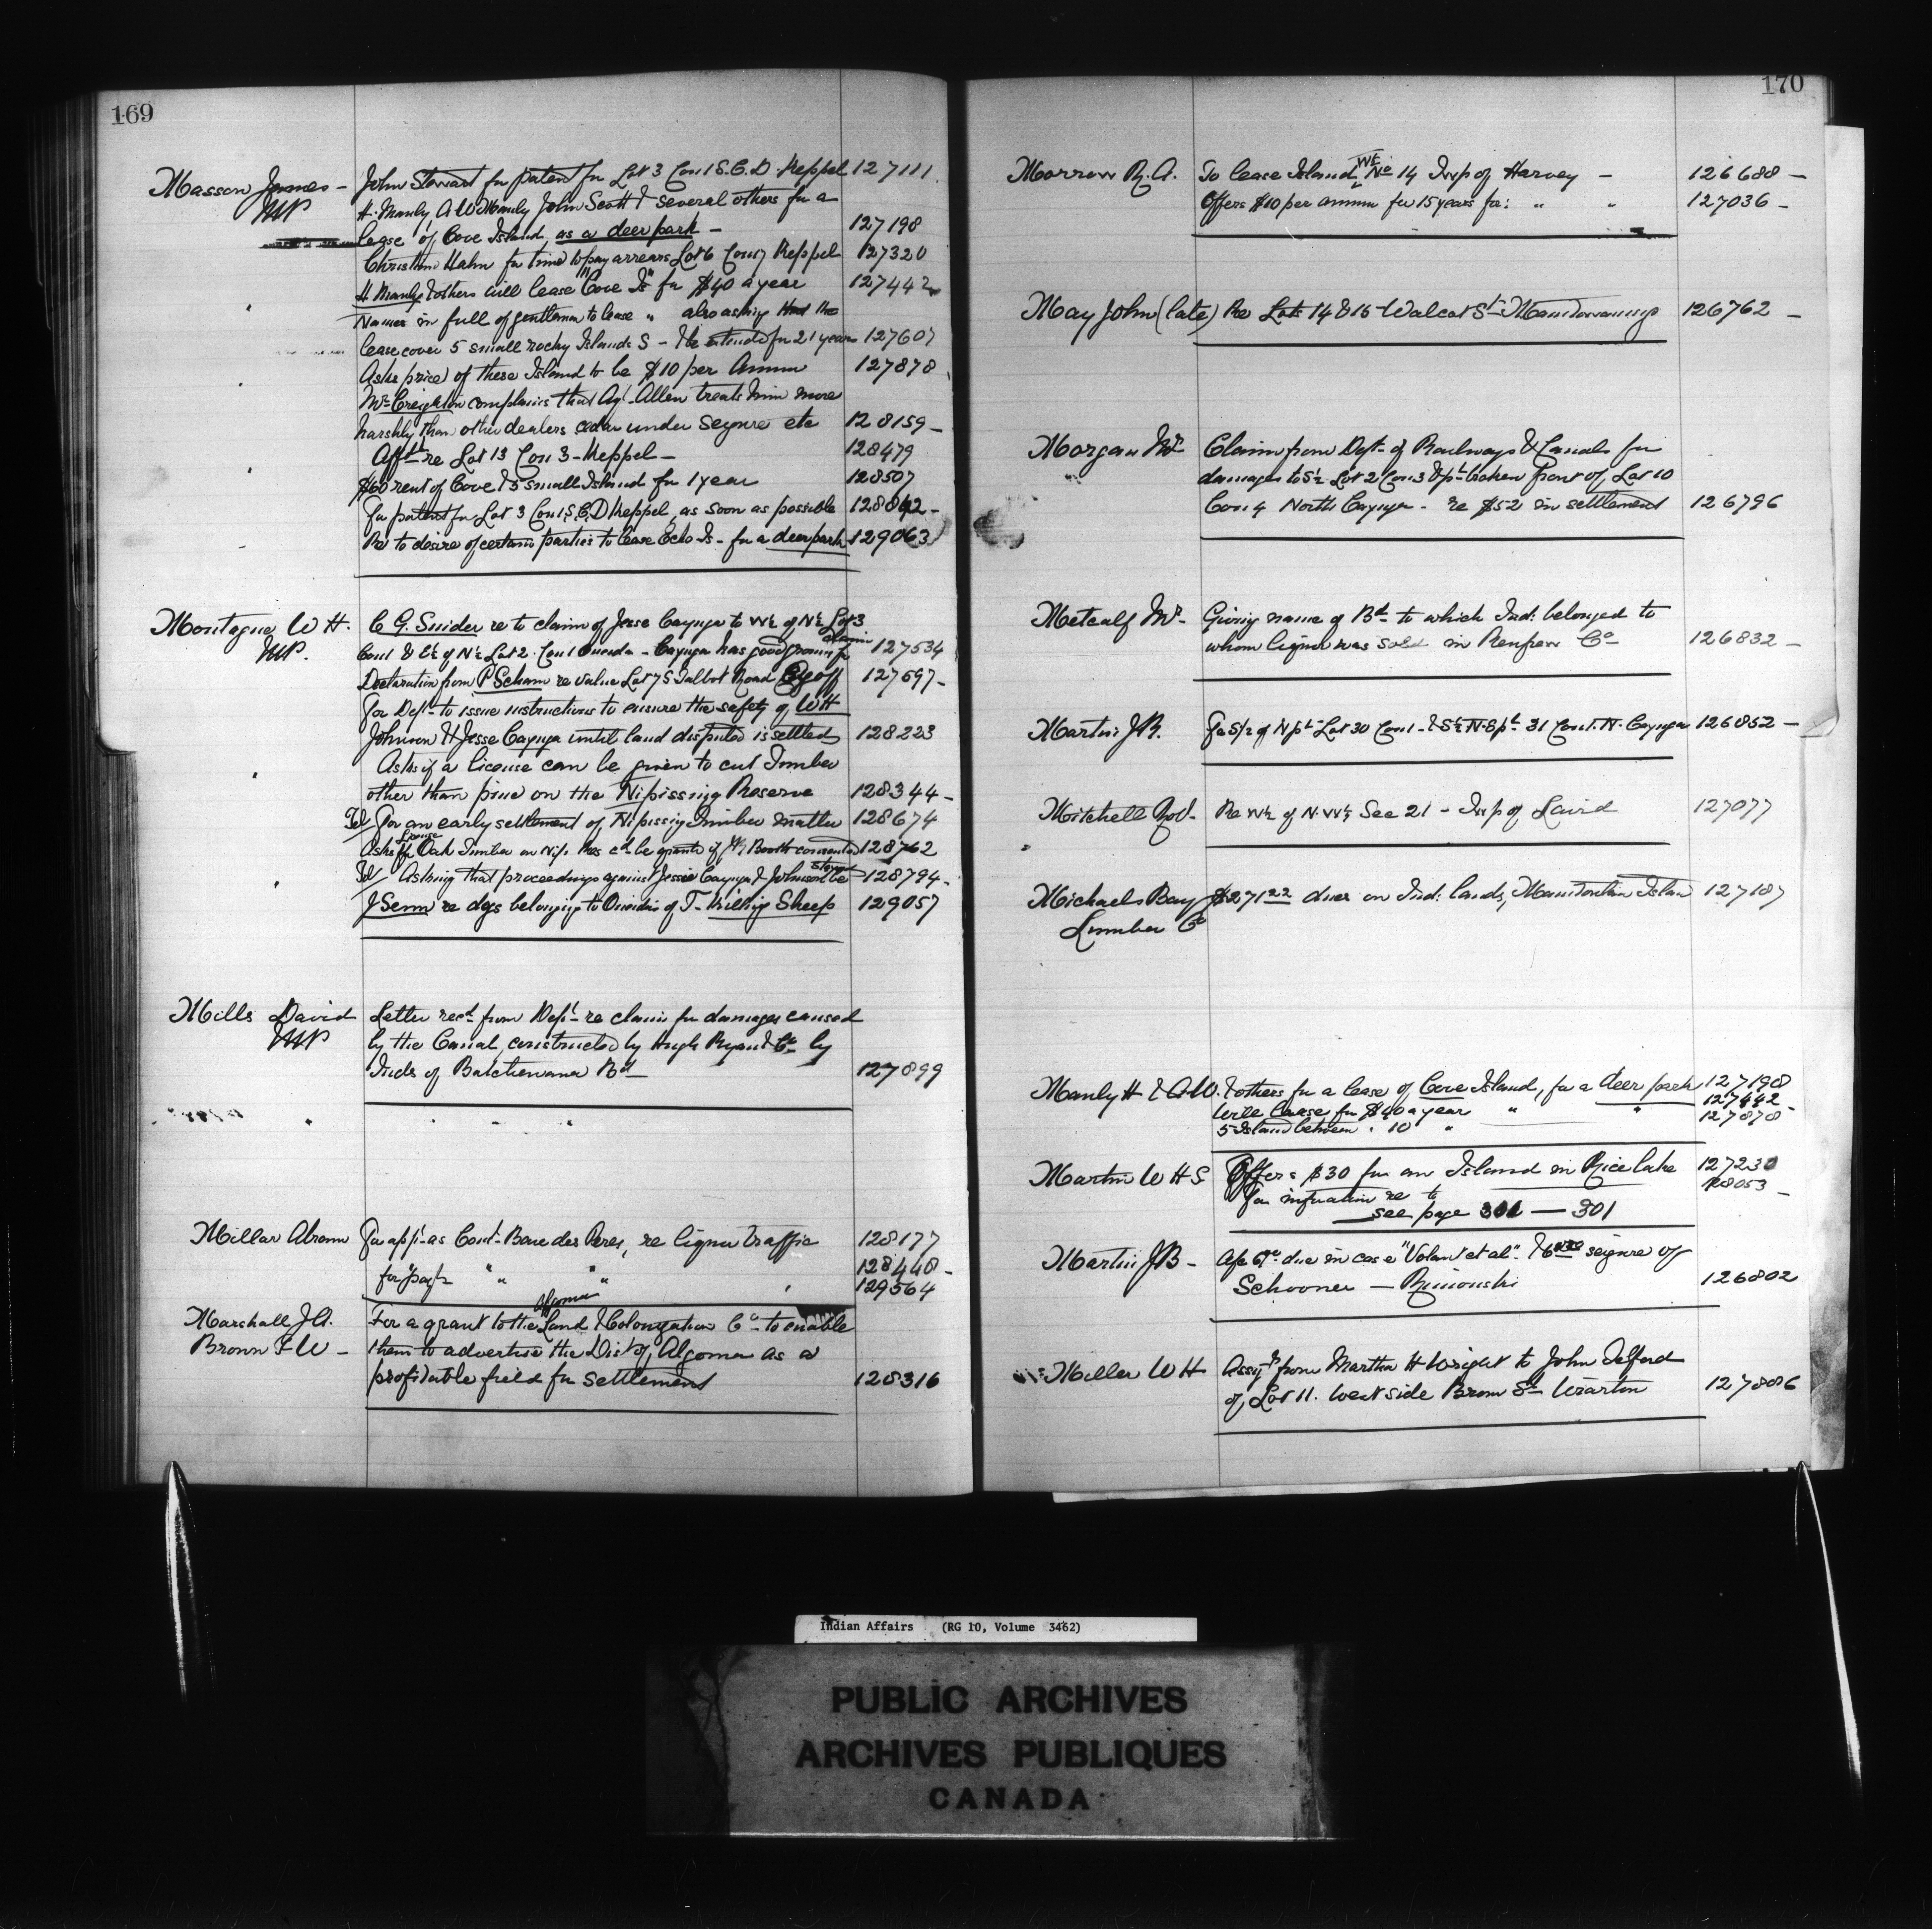 169
Masson James - John Stewart for patent for Lot 3 Con 1 S.C.D. Keppel 127111
MP H. Manly, A W Manly John Scott & several others for a
lease of Cove Island as a deer park - 127198
Christian Hahn for time to pay arrears Lot 6 Con 7 Keppel 127320
H Manly & others will lease "Cove Is" for $40 a year 127442
" Names in full of gentlemen to lease " also asking that the
lease cover 5 small rocky Islands S - & be extended for 21 years 127607
" Asks price of these Island to be $10 per Annum 127878
Mr Creighton complains that Agt Allen treats him more
harshly than other dealers cedar under seizure etc 128159 -
" Afft re Lot 13 Con 3 - Keppel - 128479
$60 rent of Cove & 5 small Island for 1 year 128507
For patent for Lot 3 Con 1, S.C.D Keppel, as soon as possible 128842 -
Re to desire of certain parties to lease Echo Is - for a deer park 129063
Montague W H. C. G. Snider re to claim of Jesse Cayuga to W½ of N½ Lot 3
MP. Con 1 & E½ of N½ Lot 2. Con 1 Oneida - Cayuga has good ground for claim 127534
Declaration from P Scham re value Lot 7 S Talbot Road 127697 -
For Dept to issue instructions to ensure the safety of W H
Johnson & Jesse Cayuga until land disputed is settled 128223
" Asks if a license can be given to cut Timber
other than pine on the Nipissing Reserve 128344 -
Tel/ For an early settlement of Nipissing Timber matter 128674
Asks if license for Oak Timber on Nip. Res cd be granted if J R Booth consented 128762
" Tel/ Asking that proceedings against Jessie Cayuga & Johnson be stayed 128794 -
J Senn re dogs belonging to Oneidas of T - killing Sheep 129057
Mills David Letter recd from Dept re claim for damages caused
MP by the Canal, constructed by Hugh Ryan & Co by
Inds of Batchewana Bd - 127899
" " - "
Millar Abram For appt as Const - Baie des Peres, re liquor traffic 128177
128448 -
for pay for " " " 129564
Marshall J A. For a grant to the Algoma Land & Colonization Co to enable
Brown F W - them to advertise the Dist of Algoma as a
profitable field for settlement 128316
170
Morrow R. A. To lease Island W½ No 14 Twp of Harvey - 126688 -
Offers $10 per annum for 15 years for: " " 127036 -
May John (late) Re Lots 14 & 15 - Walcot St - Manitowaning 126762 -
Morgan Mr Claim from Dept of Railways & Canals for
damages to S½ Lot 2 Con 3 & pt broken front of Lot 10
Con 4 North Cayuga - re $52 in settlement 126796
Metcalf Mr - Giving name of Bd to which Ind: belonged to
whom liquor was sold in Renfrew Co - 126832 -
Martin J B. For S½ of N pt Lot 30 Con 1 - & S½ N. & pt 31 Con 1. N. Cayuga 126852 -
Mitchell Robt - Re W½ of N. W¼ Sec 21 - Twp of Laird 127077
Michaels Bay $271 22 dues on Ind: lands, Manitoulin Islan 127187
Lumber Co
Manly H & A W. & others for a lease of Cove Island, for a deer park 127198
Will lease for $40 a year " " 127442
5 Island between " 10 " 127878 -
Martin W H S Offers $30 for an Island in Rice lake 127230
For information re to 128053 -
see page 301 - 301
Martin J B - due in case "Volant et al" seizure of
Schooner - Rimouski 126802
Miller W H Assigt from Martha H Wright to John Telford
of Lot 11. West side Brown St Wiarton 127886
Indian Affairs (RG 10, Volume 3462)
PUBLIC ARCHIVES
ARCHIVES PUBLIQUES
CANADA